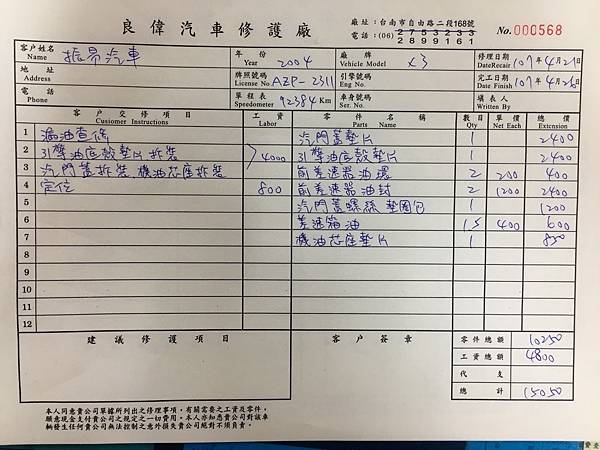 良偉汽車修護廠
廠址：台南市自由路二段168號
電話：(06) 2753233
2899161
No. 000568
客戶姓名 Name 振昇汽車
年份 Year 2004
廠牌 Vehicle Model X3
修理日期 Date Recair 107年4月21日
地址 Address
牌照號碼 License No AZP-2311
引擎號碼 Eng No.
完工日期 Date Finish 107年4月26日
電話 Phone
單程表 Speedometer 92384 Km
車身號碼 Ser. No.
填表人 Written By
客戶交修項目 Customer Instructions
工資 Labor
零件名稱 Parts Name
數目 Qty
單價 Net Each
總價 Extension
1 漏油查修 汽門蓋墊片 1 2400
2 引擎油底殼墊片拆裝 4000 引擎油底殼墊片 1 2400
3 汽門蓋拆裝 機油芯座拆裝 前差速器油環 2 200 400
4 定位 800 前差速器油封 2 1200 2400
5 汽門蓋螺絲墊圈包 1 1200
6 差速箱油 1.5 400 600
7 機油芯座墊片 1 850
8
9
10
11
12
建議修護項目
客戶簽章
零件總額 10250
工資總額 4800
代支
總計 15050
本人同意貴公司單據所列出之修理事項，有關需要之工資及零件，
願意現金支付貴公司之規定之一切費用。本人亦知悉貴公司對該車
輛發生任何貴公司無法控制之意外損失貴公司絕對不須負責。